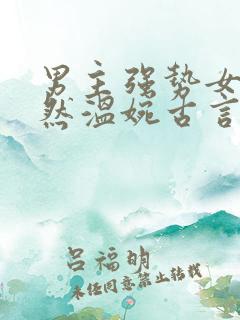 男主强势女
然温婉古言
吕福明
未经同意禁止转载